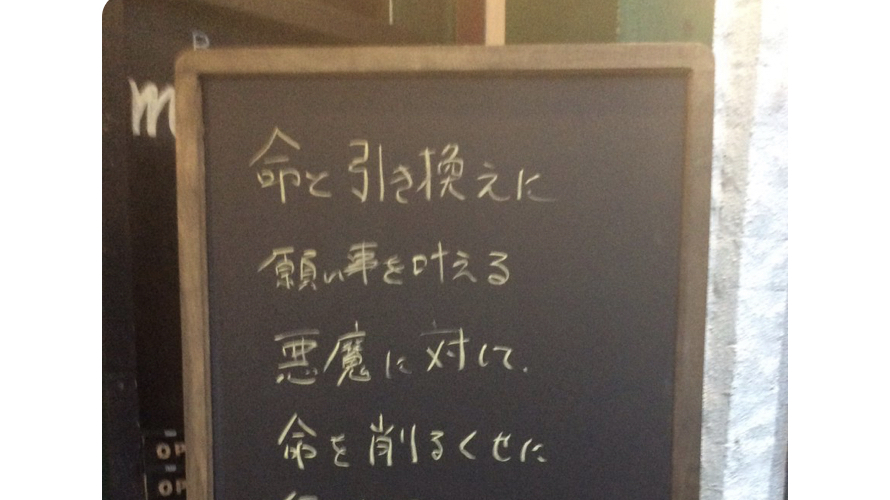 命と引き換えに
願い事を叶える
悪魔に対して、
命を削るくせに
OP
OP